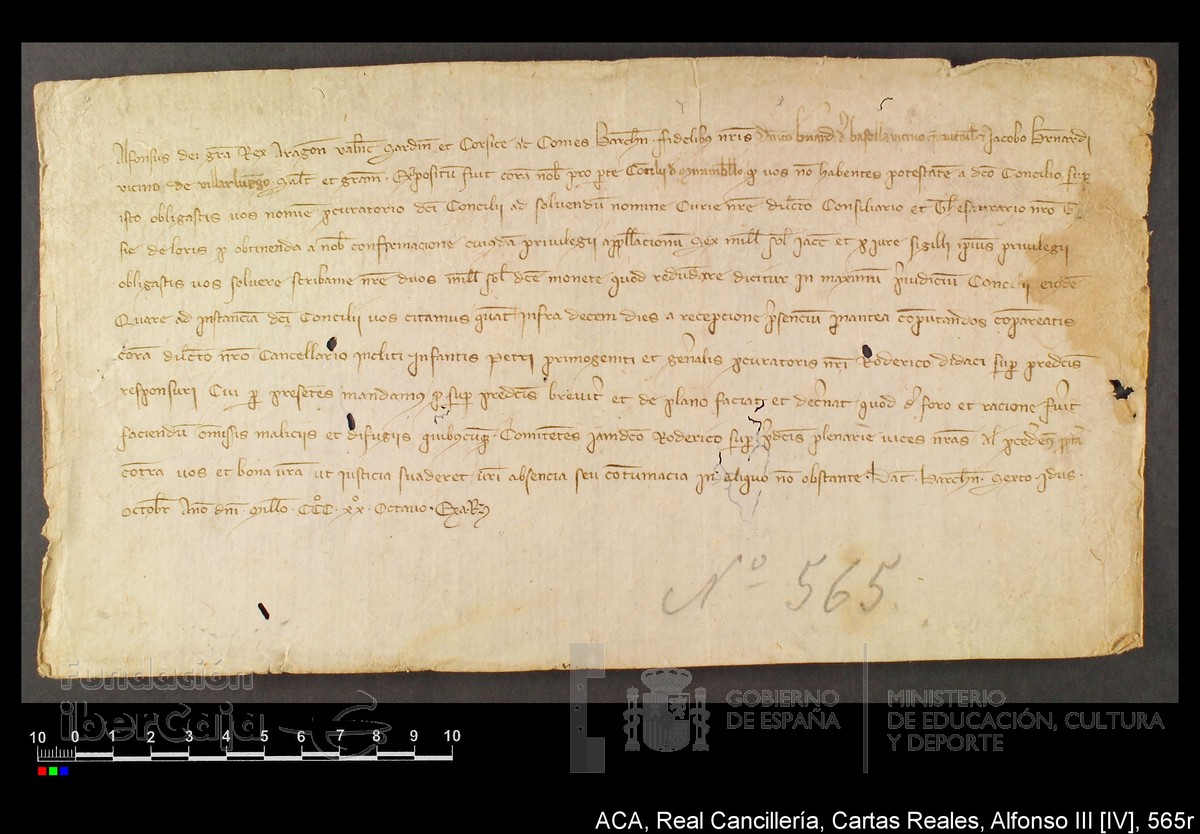 Alfonsus dei gra Rex Aragon Valenc Sardin et Corsice ac Comes Barchn fidelibus nris vicino Jacobo Bernardi
vicino de villarluengo Salt et gram Expositum fuit cora nob pro parte Concilii d mirambello q vos no habentes potestate a dco Concilio sup
isto obligastis vos nomine pcuratorio dci Concilii ad solvendu nomine Curie nre dilecto Consiliario et Thesaurario nro
de loris p obtinenda a nob confirmacione cuiusda privilegii appellacionu sex mill sol Jacc et p iure sigilli ipius privilegii
obligastis vos solvere scribanie nre duos mill sol dce monete quod redundare dicitur in maximu piudiciu Concilii eiusde
Quare ad instancia dci Concilii vos citamus quat infra decem dies a recepcione psenciu inantea coputandos copareatis
cora dilecto nro Cancellario incliti Infantis Petri primogeniti et genalis pcuratoris nri Roderico didaci sup predcis
responsuri Cui p presetes mandamus q sup predcis brevit et de plano faciat et decnat quod d foro et racione fuit
faciendu omissis maliciis et difugiis quibuscuq Comitetes iamdco Roderico sup pdcis plenarie vices nras
cotra vos et bona vra ut iusticia suaderet vri absencia seu cotumacia in aliquo no obstante Dat Barchn Sexto idus
Octobr Ano dni Millo CCC xx Octavo
Nº 565
Fundación
iberCaja
10 0 1 2 3 4 5 6 7 8 9 10
GOBIERNO
DE ESPAÑA
MINISTERIO
DE EDUCACIÓN, CULTURA
Y DEPORTE
ACA, Real Cancillería, Cartas Reales, Alfonso III [IV], 565r